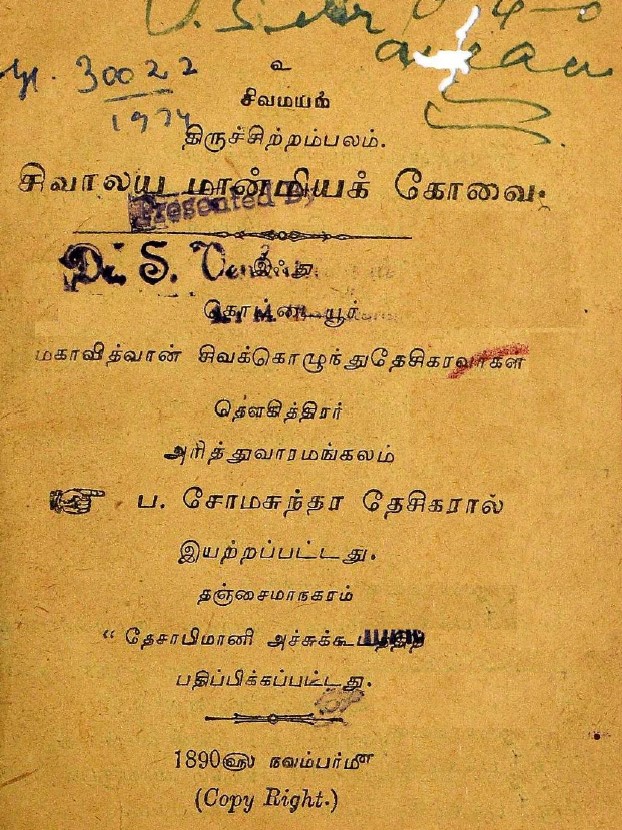 30022
1974
உ
சிவமயம்
திருச்சிற்றம்பலம்.
சிவாலய மான்மியக் கோவை.
Presented By
Dr. S.
இஃது
கொட்டையூர்
மகாவித்வான் சிவக்கொழுந்துதேசிகரவர்கள்
தௌகித்திரர்
அரித்துவாரமங்கலம்
ப. சோமசுந்தர தேசிகரால்
இயற்றப்பட்டது.
தஞ்சைமாநகரம்
“ தேசாபிமானி அச்சுக்கூடத்தில்
பதிப்பிக்கப்பட்டது.
1890௵ நவம்பர்௴
(Copy Right.)